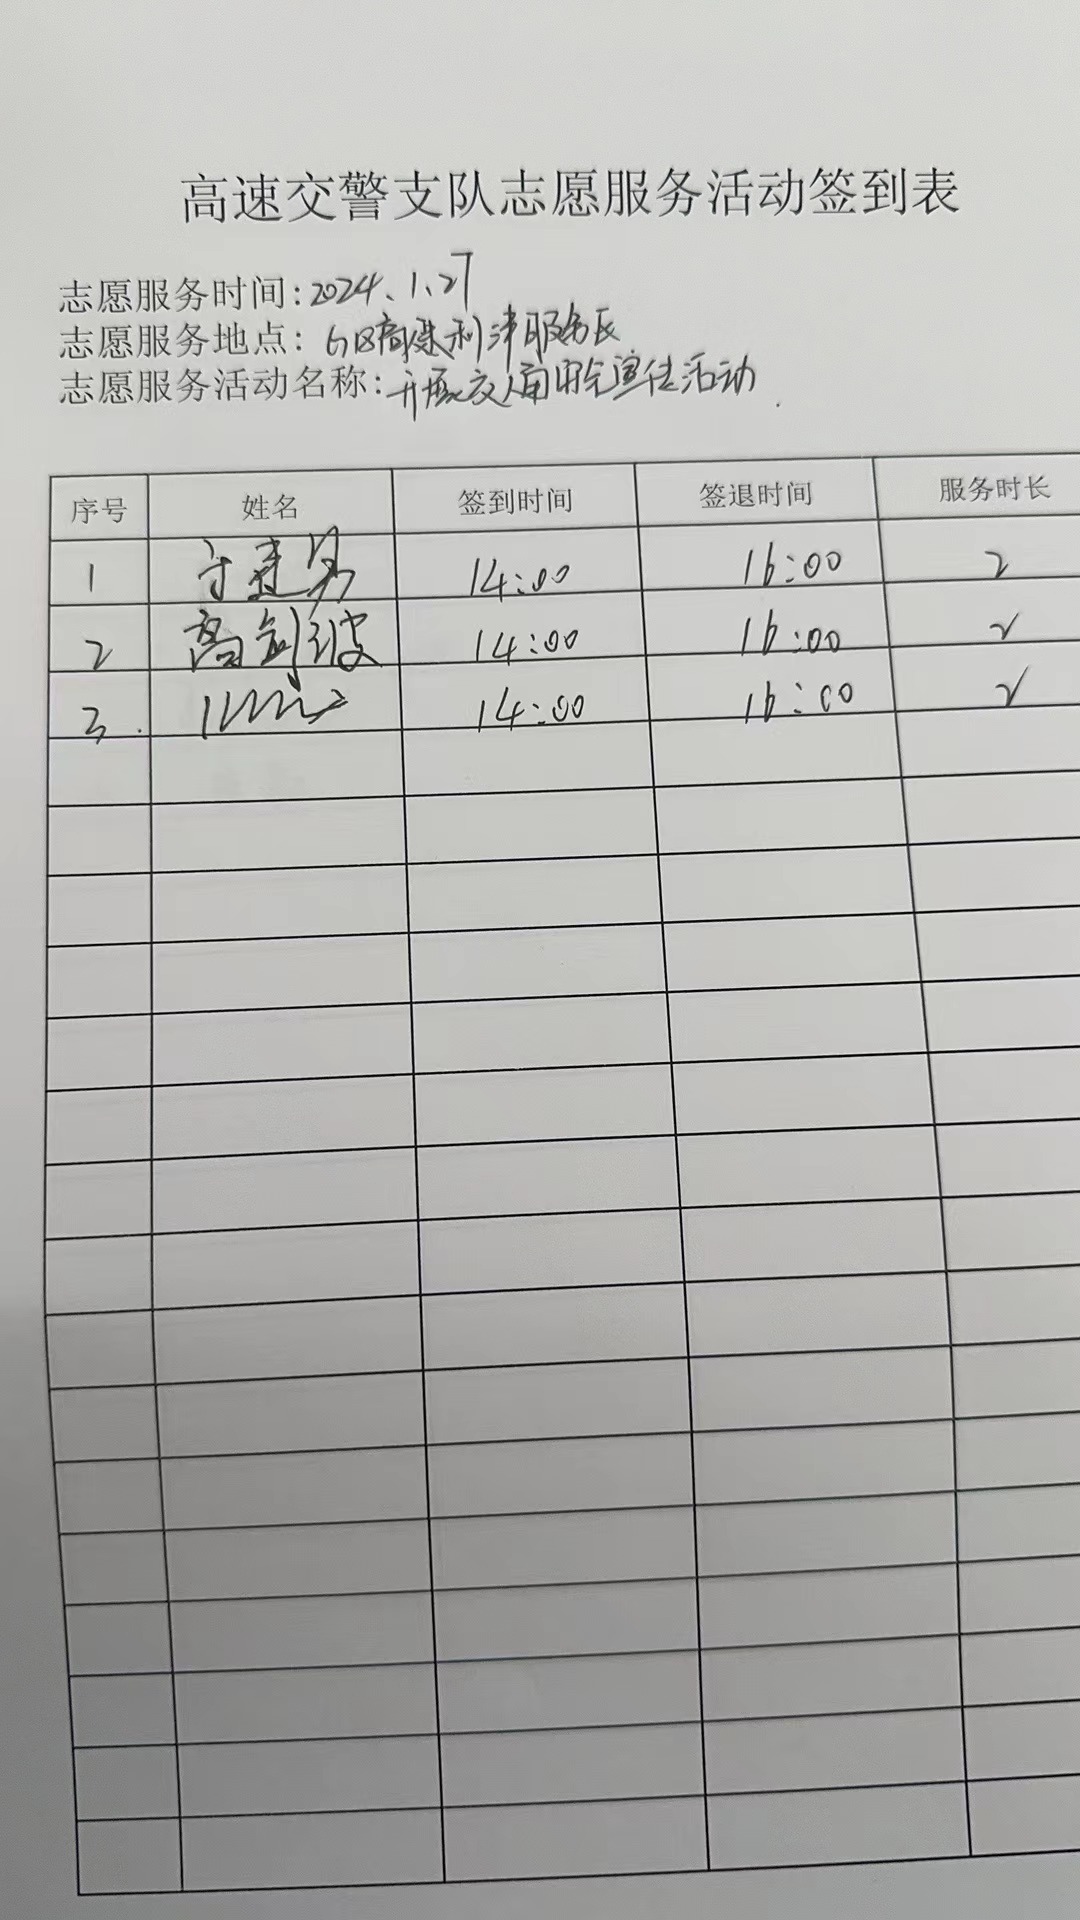 高速交警支队志愿服务活动签到表
志愿服务时间:2024、1、27
志愿服务地点:G18高速利津服务区
志愿服务活动名称:开展交通安全宣传活动.
序号 姓名 签到时间 签退时间 服务时长
1 14:00 16:00 2
2 高剑波 14:00 16:00 2
3. 14:00 16:00 2